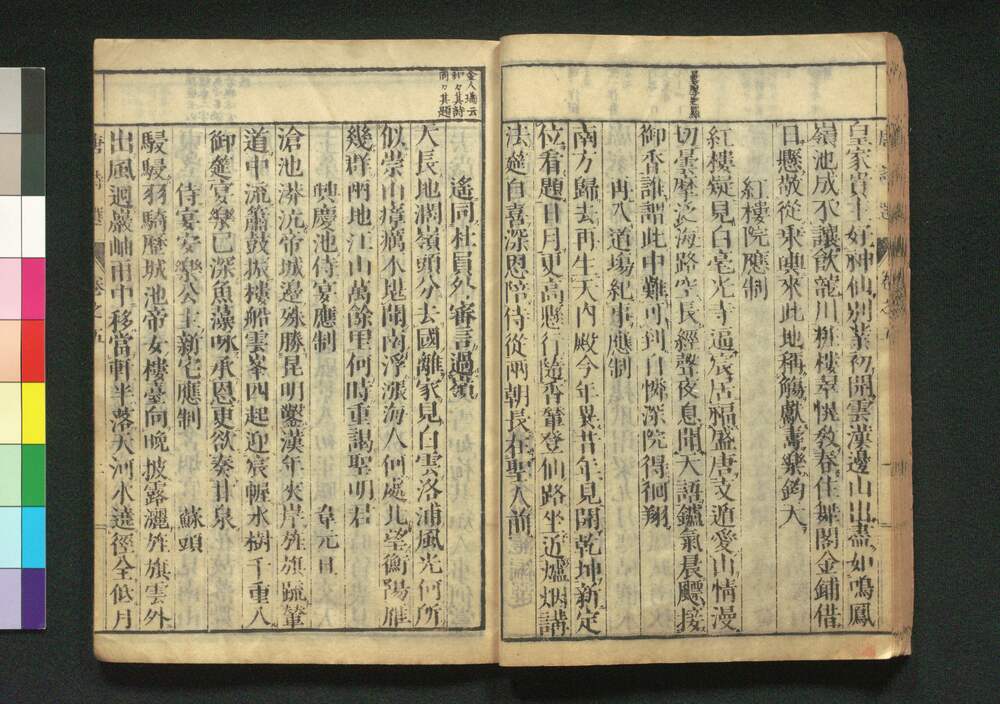 唐詩選　卷之五
皇家貴主好神仙別業初開雲漢邊山出盡如鳴鳳
嶺池成不讓飲龍川粧樓翠幌敎春住舞閣金鋪借
日懸敬從乘輿來此地稱觴獻壽樂鈞天
紅樓院應制
紅樓疑見白毫光寺逼宸居福盛唐支遁愛山情漫
切曇摩泛海路空長經聲夜息聞天語鑪氣晨飄接
御香誰謂此中難可到自憐深院得徊翔
再入道場紀事應制
南方歸去再生天內殿今年異昔年見闢乾坤新定
位看題日月更高懸行隨香輦登仙路坐近爐烟講
法筵自喜深恩陪侍從兩朝長在聖人前
金人瑞云
和々其詩
同々其題
遙同杜員外審言過嶺
天長地濶嶺頭分去國離家見白雲洛浦風光何所
似崇山瘴癘不堪聞南浮漲海人何處北望衡陽雁
幾群兩地江山萬餘里何時重謁聖明君
興慶池侍宴應制　韋元旦
滄池漭沆帝城邊殊勝昆明鑿漢年夾岸旌旗疏輦
道中流簫鼓振樓船雲峯四起迎宸幄水樹千重入
御筵宴樂已深魚藻咏承恩更欲奏甘泉
侍宴安樂公主新宅應制　蘇頲
駸駸羽騎歷城池帝女樓臺向晚披露灑旌旗雲外
出風迴巖岫雨中移當軒半落天河水遶徑全低月
唐詩選　卷之五